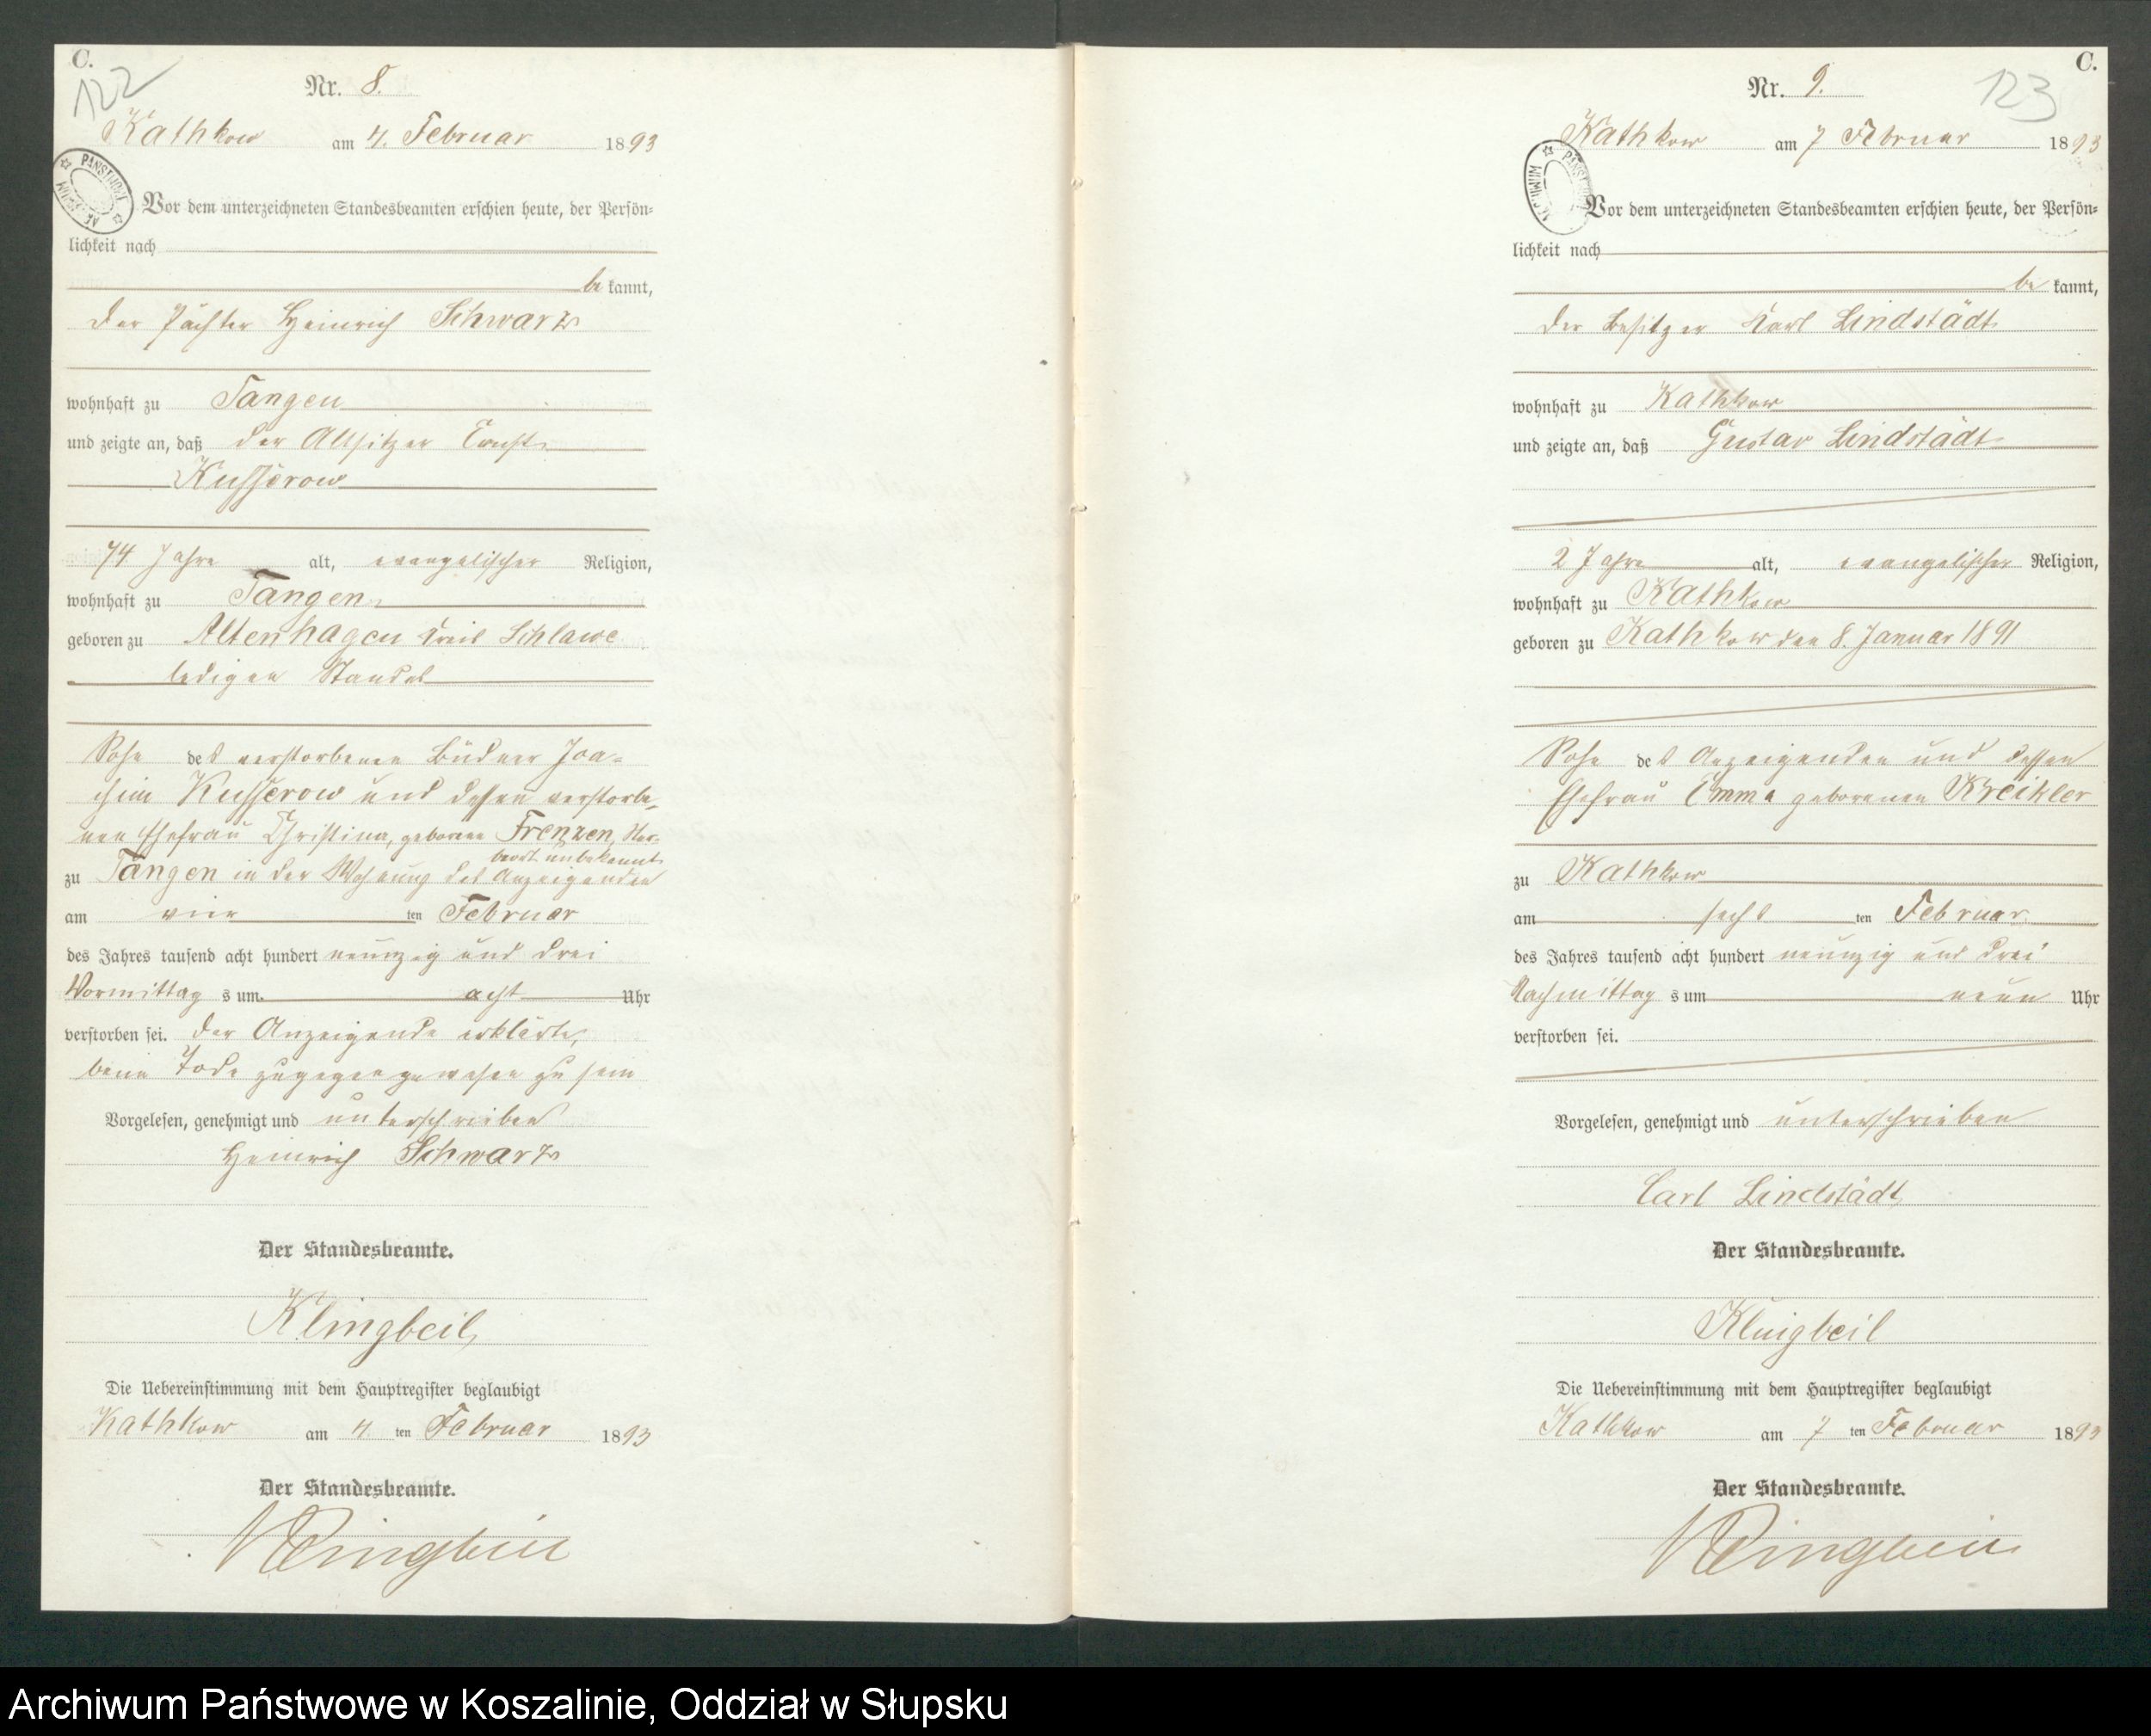 C.
122
Nr. 8.
Kathkow am 4. Februar 1893
Vor dem unterzeichneten Standesbeamten erschien heute, der Persön-
lichkeit nach
be kannt,
der Pächter Heinrich Schwarz
wohnhaft zu Tangen
und zeigte an, daß der Altsitzer Ernst
Kusserow
74 Jahre alt, evangelischer Religion,
wohnhaft zu Tangen
geboren zu Altenhagen Kreis Schlawe
ledigen Standes
Sohn des verstorbenen Büdner Joa-
chim Kusserow und dessen verstorbe-
nen Ehefrau Christina, geborene Frenzen, Ster-
beort unbekannt
zu Tangen in der Wohnung des Anzeigenden
am vier ten Februar
des Jahres tausend acht hundert neunzig und drei
Vormittag s um acht Uhr
verstorben sei. Der Anzeigende erklärte,
beim Tode zugegen gewesen zu sein
Vorgelesen, genehmigt und unterschrieben
Heinrich Schwarz
Der Standesbeamte.
Klingbeil
Die Uebereinstimmung mit dem Hauptregister beglaubigt
Kathkow am 4 ten Februar 1893
Der Standesbeamte.
Klingbeil
C.
123
Nr. 9.
Kathkow am 7 Februar 1893
Vor dem unterzeichneten Standesbeamten erschien heute, der Persön-
lichkeit nach
be kannt,
der Besitzer Karl Lindstädt
wohnhaft zu Kathkow
und zeigte an, daß Gustav Lindstädt
2 Jahre alt, evangelischer Religion,
wohnhaft zu Kathkow
geboren zu Kathkow den 8. Januar 1891
Sohn des Anzeigenden und dessen
Ehefrau Emma geborenen Kreikler
zu Kathkow
am sechs ten Februar
des Jahres tausend acht hundert neunzig und drei
Nachmittag s um neun Uhr
verstorben sei.
Vorgelesen, genehmigt und unterschrieben
Carl Lindstädt
Der Standesbeamte.
Klingbeil
Die Uebereinstimmung mit dem Hauptregister beglaubigt
Kathkow am 7 ten Februar 1893
Der Standesbeamte.
Klingbeil
Archiwum Państwowe w Koszalinie, Oddział w Słupsku